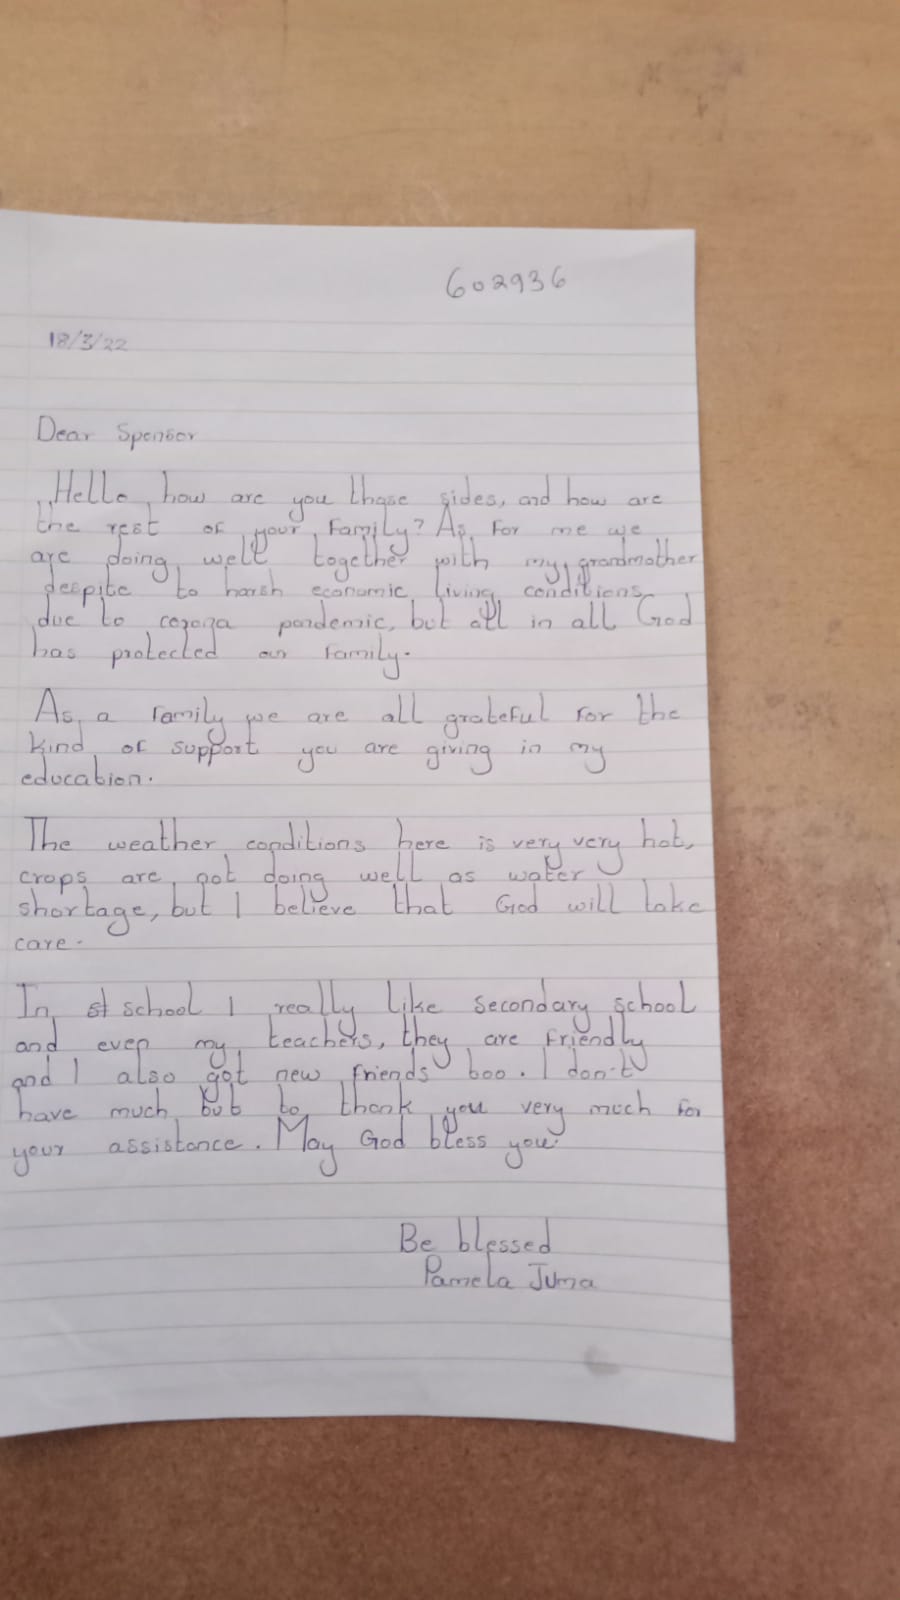 602936
18/3/22
Dear Sponsor
Hello, how are you those sides, and how are
the rest of your family? As for me we
are doing well together with my grandmother
despite to harsh economic living conditions
due to corona pandemic, but all in all God
has protected our family.
As a family we are all grateful for the
kind of support you are giving in my
education.
The weather conditions here is very very hot,
crops are not doing well as water
shortage, but I believe that God will take
care.
In st school I really like secondary school
and even my teachers, they are friendly
and I also got new friends too. I don't
have much but to thank you very much for
your assistance. May God bless you.
Be blessed
Pamela Juma